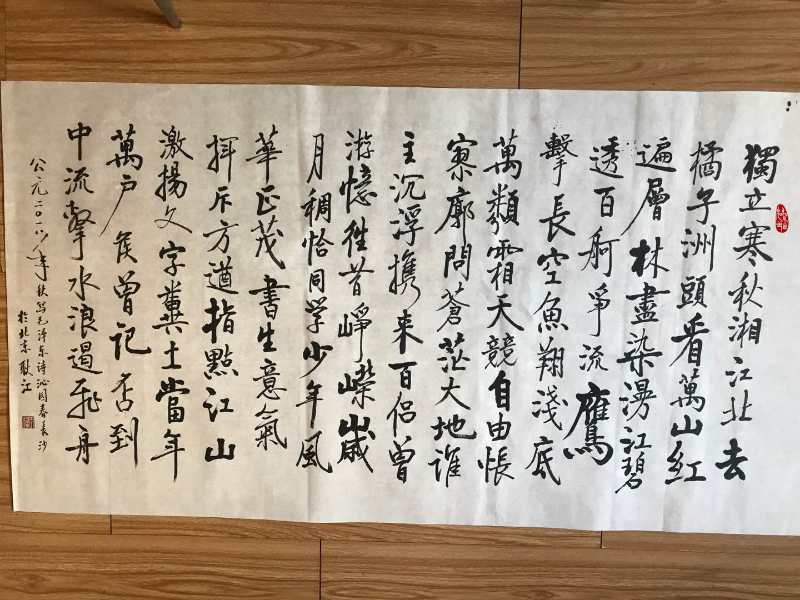 獨立寒秋湘江北去
橘子洲頭看萬山紅
遍層林盡染漫江碧
透百舸爭流鷹
擊長空魚翔淺底
萬類霜天競自由悵
寥廓問蒼茫大地誰
主沉浮携来百侣曾
游憶往昔崢嶸歲
月稠恰同学少年風
華正茂書生意氣
揮斥方遒指點江山
激揚文字糞土當年
萬户侯曾記否到
中流擊水浪遏飛舟
公元二〇一八年秋寫毛泽东诗沁园春長沙
於北京